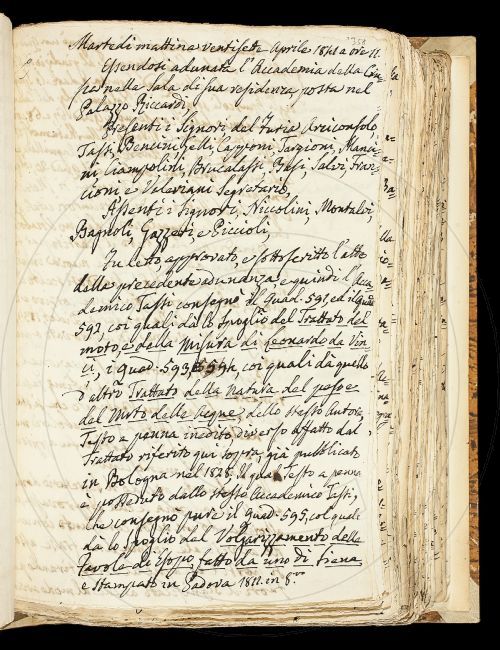 Martedì mattina ventisette Aprile 1841 a ore 11.
Essendosi adunata l'Accademia della Cru=
sca nella Sala di sua residenza, posta nel
Palazzo Riccardi,
Presenti i Signori del Furia Arciconsolo,
Tassi, Bencini, Gelli, Capponi, Targioni, Manci=
ni, Ciampolini, Brucalassi, Busi, Salvi, Fran=
cioni e Valeriani Segretario,
Assenti i Signori, Niccolini, Montalvi,
Bagnoli, Gazzeri, e Piccioli,
Fu letto, approvato, e sottoscritto l'atto
della precedente adunanza, e quindi l'Acca=
demico Tassi consegnò il Quad. 591, ed il Quad.
592, coi quali dà lo Spoglio del Trattato del
moto, e della Misura di Leonardo da Vin=
ci, i Quad. 593 594, coi quali dà quello
d'altro Trattato della Natura del peso e
del Moto delle Acque, dello stesso Autore,
Testo a penna inedito, diverso affatto dal
Trattato riferito qui sopra, già pubblicato
in Bologna nel 1828, il qual Testo a penna
è posseduto dallo stesso Accademico Tassi,
che consegnò pure il Quad. 595, col quale
dà lo Spoglio del Volgarizzamento delle
Favole di Esopo, fatto da uno di Siena
e stampato in Padova 1811. in 8.vo